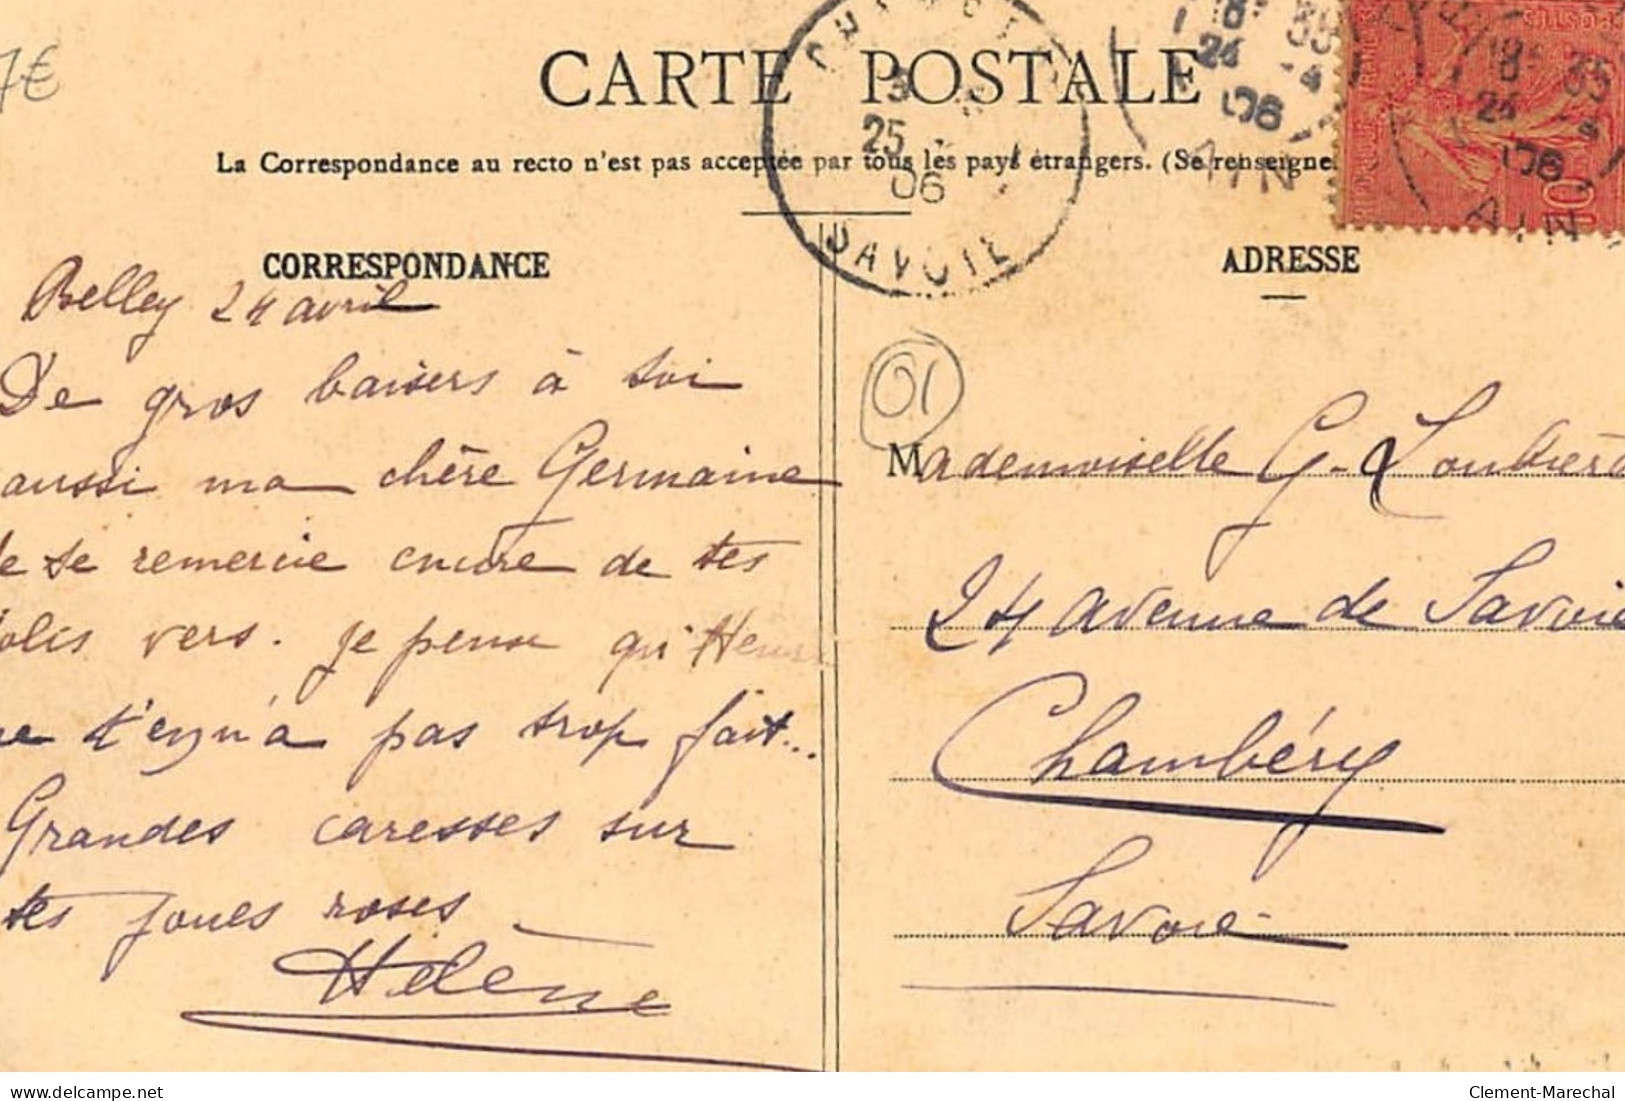 7€
CARTE POSTALE
La Correspondance au recto n'est pas acceptée par tous les pays étrangers. (Se renseigne
3
25
06
SAVOIE
18 35
24 -4
06
AIN
18 35
24 -4
06
AIN
POSTES
10
CORRESPONDANCE
Belley 24 avril
De gros baisers à toi
aussi ma chère Germaine
Je te remercie encore de tes
jolis vers. Je pense qu'Henri
ne t'en a pas trop fait...
Grandes caresses sur
tes joues roses
Hélène
ADRESSE
01
Mademoiselle G.
24 avenue de Savoie
Chambéry
Savoie
delcampe.net
Clement-Marechal